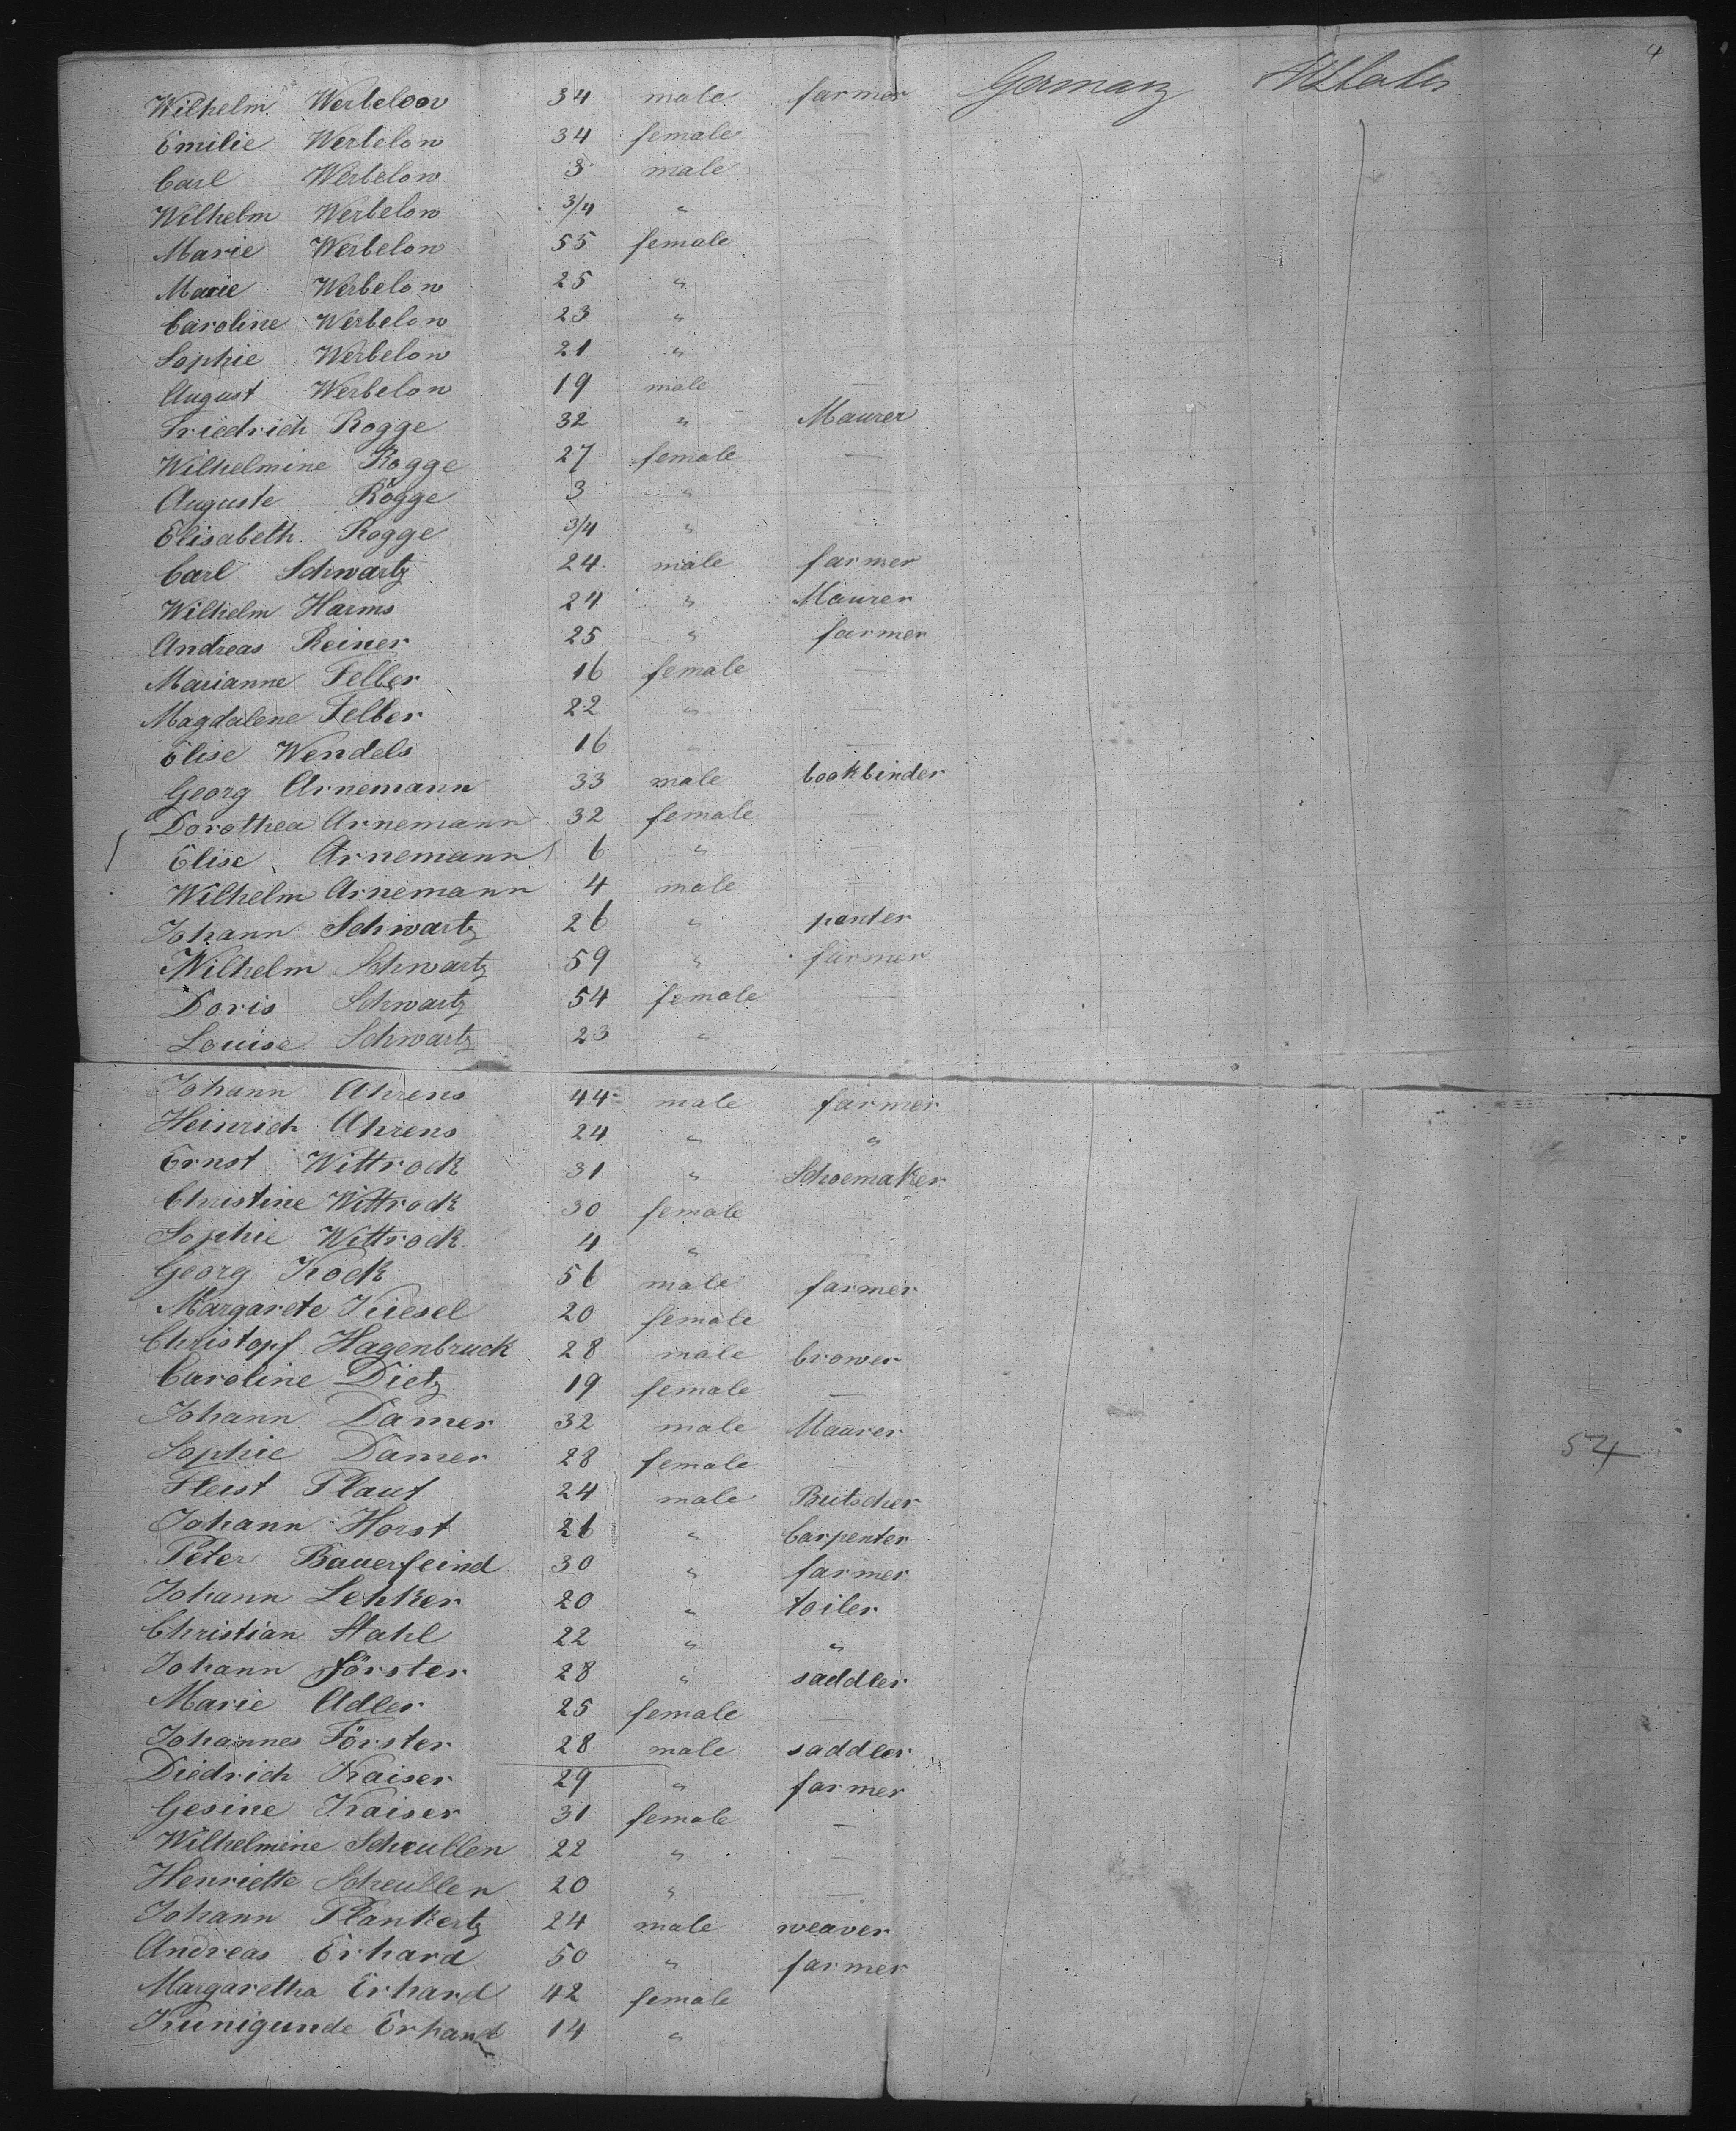 4
Wilhelm Werbelow 34 male farmer Germany U States
Emilie Werbelow 34 female —
Carl Werbelow 3 male
Wilhelm Werbelow 3/4 "
Marie Werbelow 55 female —
Marie Werbelow 25 " —
Caroline Werbelow 23 "
Sophie Werbelow 21 "
August Werbelow 19 male —
Friedrich Rogge 32 " Maurer
Wilhelmine Rogge 27 female —
Auguste Rogge 3 " —
Elisabeth Rogge 3/4 " —
Carl Schwartz 24 male farmer
Wilhelm Harms 24 " Maurer
Andreas Reiner 25 " farmer
Marianne Felber 16 female —
Magdalene Felber 22 " —
Elise Wendels 16 " —
Georg Arnemann 33 male bookbinder
Dorothea Arnemann 32 female —
Elise Arnemann 6 " —
Wilhelm Arnemann 4 male —
Johann Schwartz 26 " panter
Wilhelm Schwartz 59 " farmer
Doris Schwartz 54 female —
Louise Schwartz 23 "
Johann Ahrens 44 male farmer
Heinrich Ahrens 24 " "
Ernst Wittrock 31 " Schoemaker
Christine Wittrock 30 female —
Sophie Wittrock 4 " —
Georg Kock 56 male farmer
Margarete Kiesel 20 female
Christopf Hagenbruck 28 male brower
Caroline Dietz 19 female —
Johann Damer 32 male Maurer
Sophie Damer 28 female — 54
Pleist Plaut 24 male Butscher
Johann Horst 26 " Carpenter
Peter Bauerfeind 30 " farmer
Johann Lehker 20 " toiler
Christian Stahl 22 " "
Johann Förster 28 " saddler
Marie Adler 25 female —
Johannes Förster 28 male saddler
Diedrich Kaiser 29 " farmer
Gesine Kaiser 31 female —
Wilhelmine Scheullen 22 " —
Henriette Scheullen 20 " —
Johann Plankertz 24 male weaver
Andreas Erhard 50 " farmer
Margaretha Erhard 42 female
Kunigunde Erhard 14 "